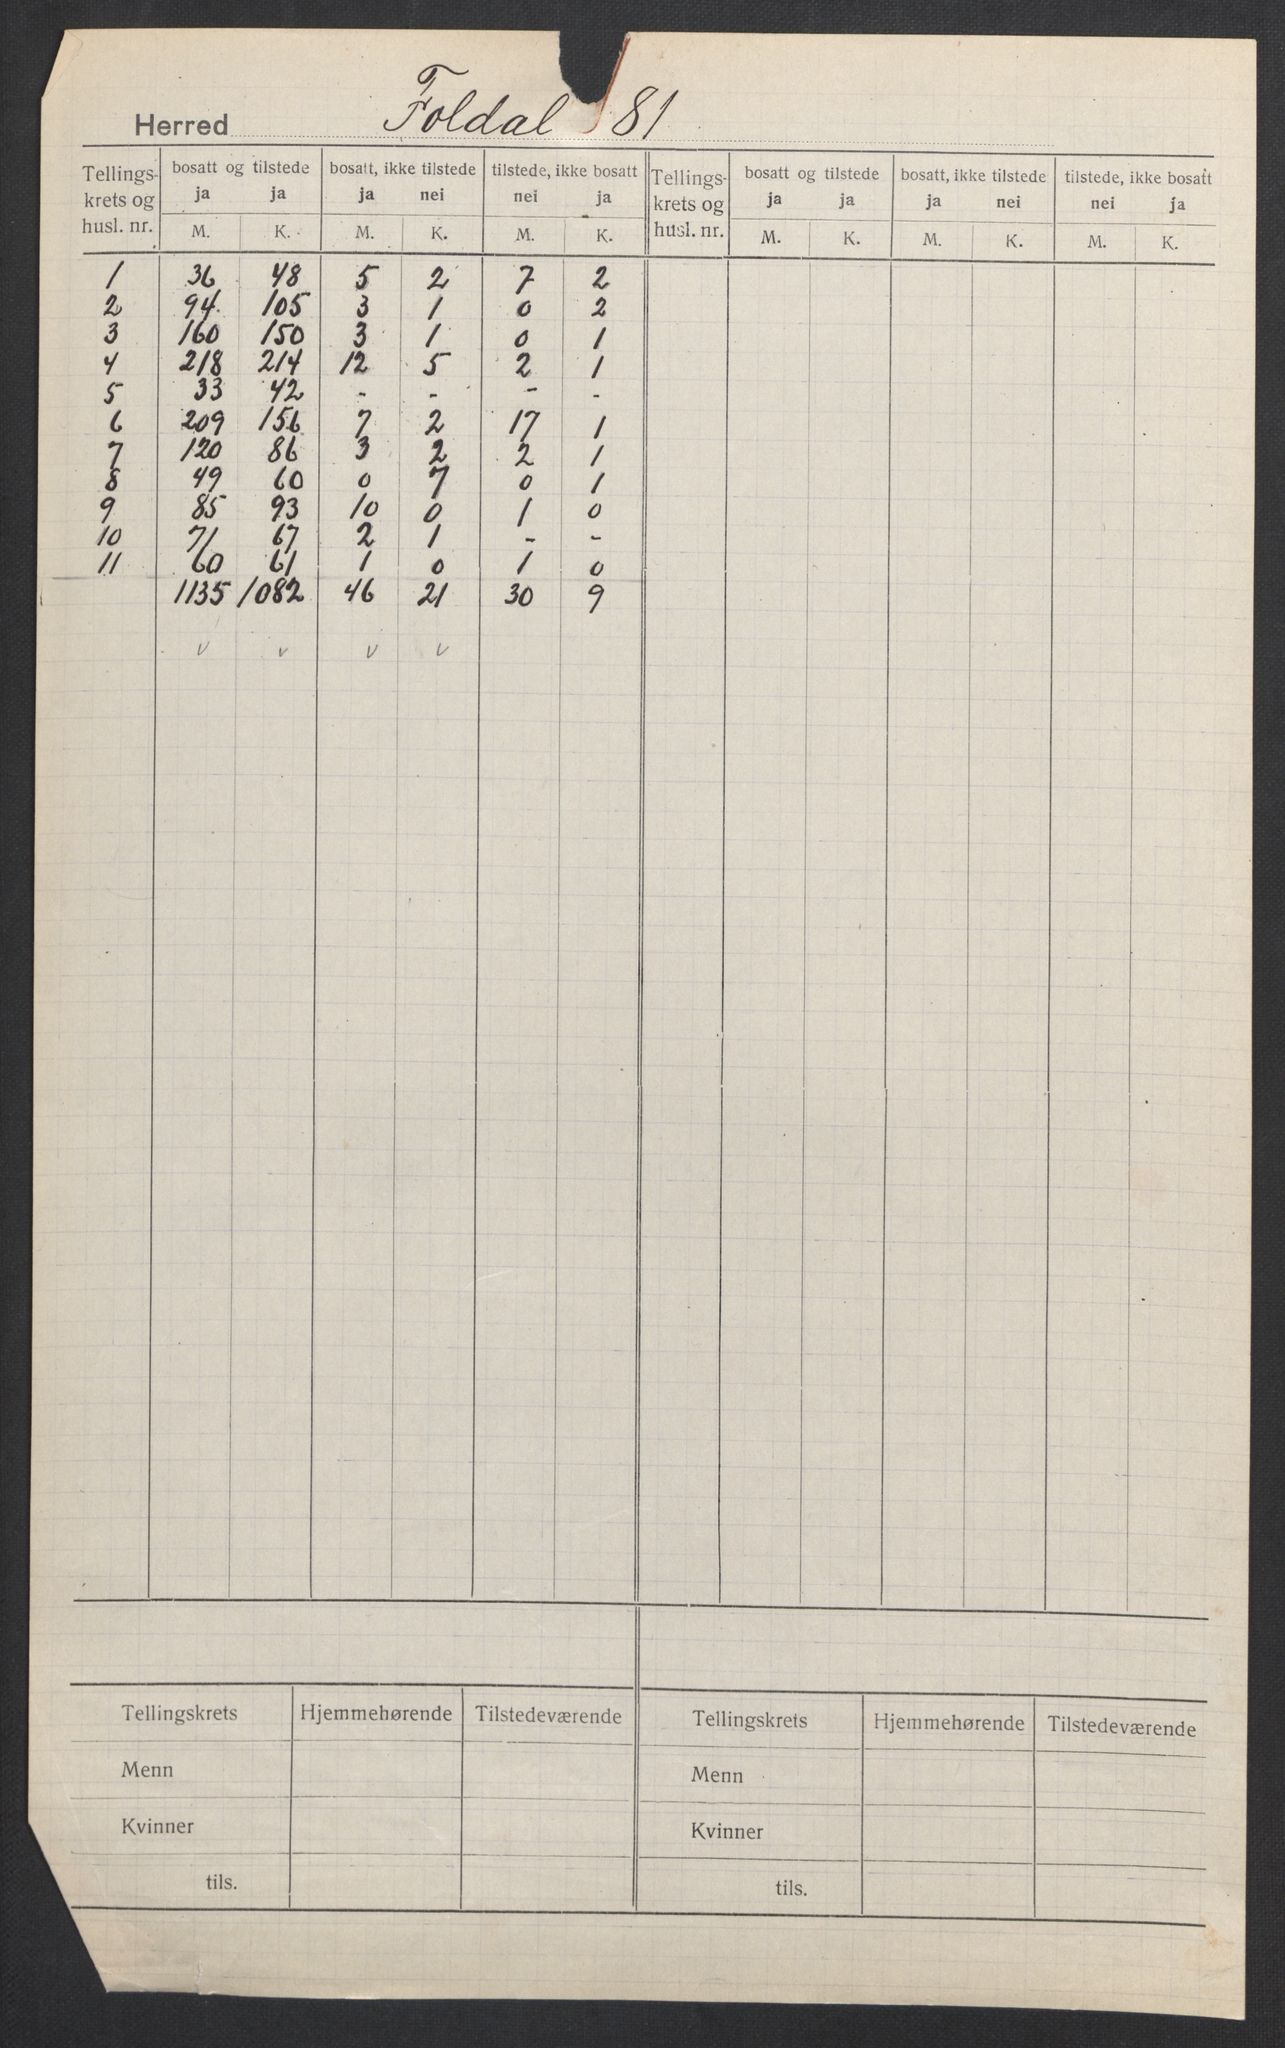 Herred Foldal 81
Tellings- bosatt og tilstede bosatt, ikke tilstede tilstede, ikke bosatt Tellings- bosatt og tilstede bosatt, ikke tilstede tilstede, ikke bosatt
krets og ja ja ja nei nei ja krets og ja ja ja nei nei ja
husl. nr. M. K. M. K. M. K. husl. nr. M. K. M. K. M. K.
1 36 48 5 2 7 2
2 94 105 3 1 0 2
3 160 150 3 1 0 1
4 218 214 12 5 2 1
5 33 42 - - - -
6 209 156 7 2 17 1
7 120 86 3 2 2 1
8 49 60 0 7 0 1
9 85 93 10 0 1 0
10 71 67 2 1 - -
11 60 61 1 0 1 0
1135 1082 46 21 30 9
v v v v
Tellingskrets Hjemmehørende Tilstedeværende Tellingskrets Hjemmehørende Tilstedeværende
Menn Menn
Kvinner Kvinner
tils. tils.